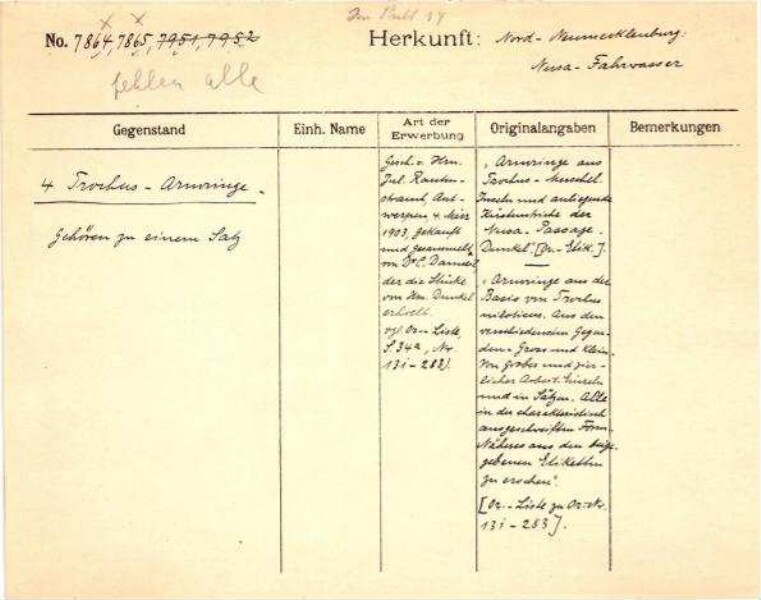 No. 7864, 7865, 7951, 7952
fehlen alle
Herkunft: Nord-Neumecklenburg:
Nusa-Fahrwasser
Gegenstand
Einh. Name
Art der
Erwerbung
Originalangaben
Bemerkungen
4 Trochus-Armringe.
Gehören zu einem Satz
Gesch. v. Hrn.
Jul. Rauten-
strauch, Ant-
werpen, 4. März
1903, gekauft
und gesammelt
von Dr. C. Danneil
der die Stücke
von Hrn. Dunkel
erhielt.
vgl. Or-Liste,
S. 34a, Nr.
131-283).
"Armringe aus
Trochus-Muschel.
Inseln und anliegende
Küstenstriche der
Nusa-Passage.
Dunkel". [Or.-Etik.].
"Armringe aus der
Basis von Trochus
niloticus. Aus den
verschiedensten Gegen-
den. Gross und Klein.
Von grober und zier-
licher Arbeit. Einzeln
und in Sätzen. Alle
in der charakteristisch
ausgeschweiften Form.
Näheres aus den beige-
gebenen Etiketten
zu ersehen".
[Or.-Liste zu Or-Nr.
131-283].